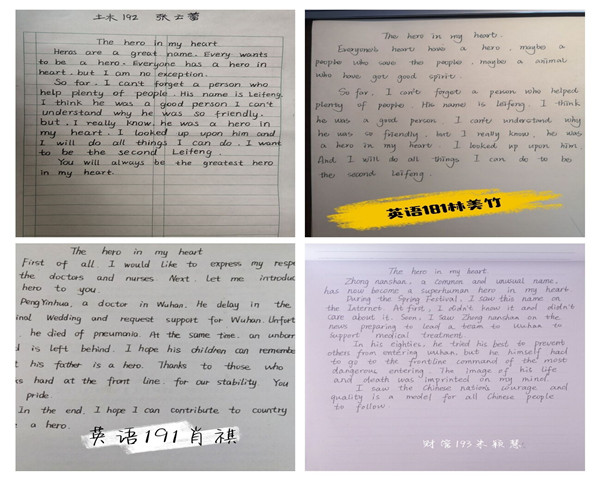 土木192 张士蕾
The hero in my heart
Heros are a great name. Every wants
to be a hero. Everyone has a hero in
heart. but I am no exception.
So far. I can't forget a person who
help plenty of people. His name is Leifeng.
I think he was a good person I can't
understand why he was so friendly.
but, I really know. he was a hero in
my heart. I looked up upon him and
I will do all things I can do. I want
to be the second Leifeng.
You will always be the greatest hero
in my heart.
The hero in my heart.
Everyone's heart have a hero. maybe a
people who save the people. maybe a animal
who have got good spirit.
So far, I can't forget a person who helped
plenty of people. His name is leifeng. I think
he was a good person. I can't understand why
he was so friendly. but I really know, he was
a hero in my heart. I looked up upon him.
And I will do all things I can do to be
the second leifeng.
英语181林美竹
The hero in my heart
First of all. I would like to express my resp
the doctors and nurses Next. let me introduc
hero to you.
PengYinhua, a doctor in Wuhan. He delay in the
inal Wedding and request support for Wuhan. Unfort
he died of pneumonia. At the same time. an unborn
d is left behind. I hope his children can remembe
t his father is a hero. Thanks to those who
s hard at the front line. for our stability You
pride.
In the end. I hope I can contribute to country
a hero.
英语191肖祺
The hero in my heart
Zhong nanshan, a common and unusual name,
has now become a superhuman hero in my heart
During the Spring Festival, I saw this name on
the Internet At first, I didn't know it and didn't
care about it. Soon, I saw Zhong nanshan on the
news preparing to lead a team to Wuhan to
support medical treatment.
In his eighties, he tried his best to prevent
others from entering wuhan, but he himself had
to go to the frontline command of the most
dangerous entering. The image of his life
and death was imprinted on my mind.
I saw the Chinese nation's courage and
quality is a model for all Chinese people
to follow.
财管193宋颖慧